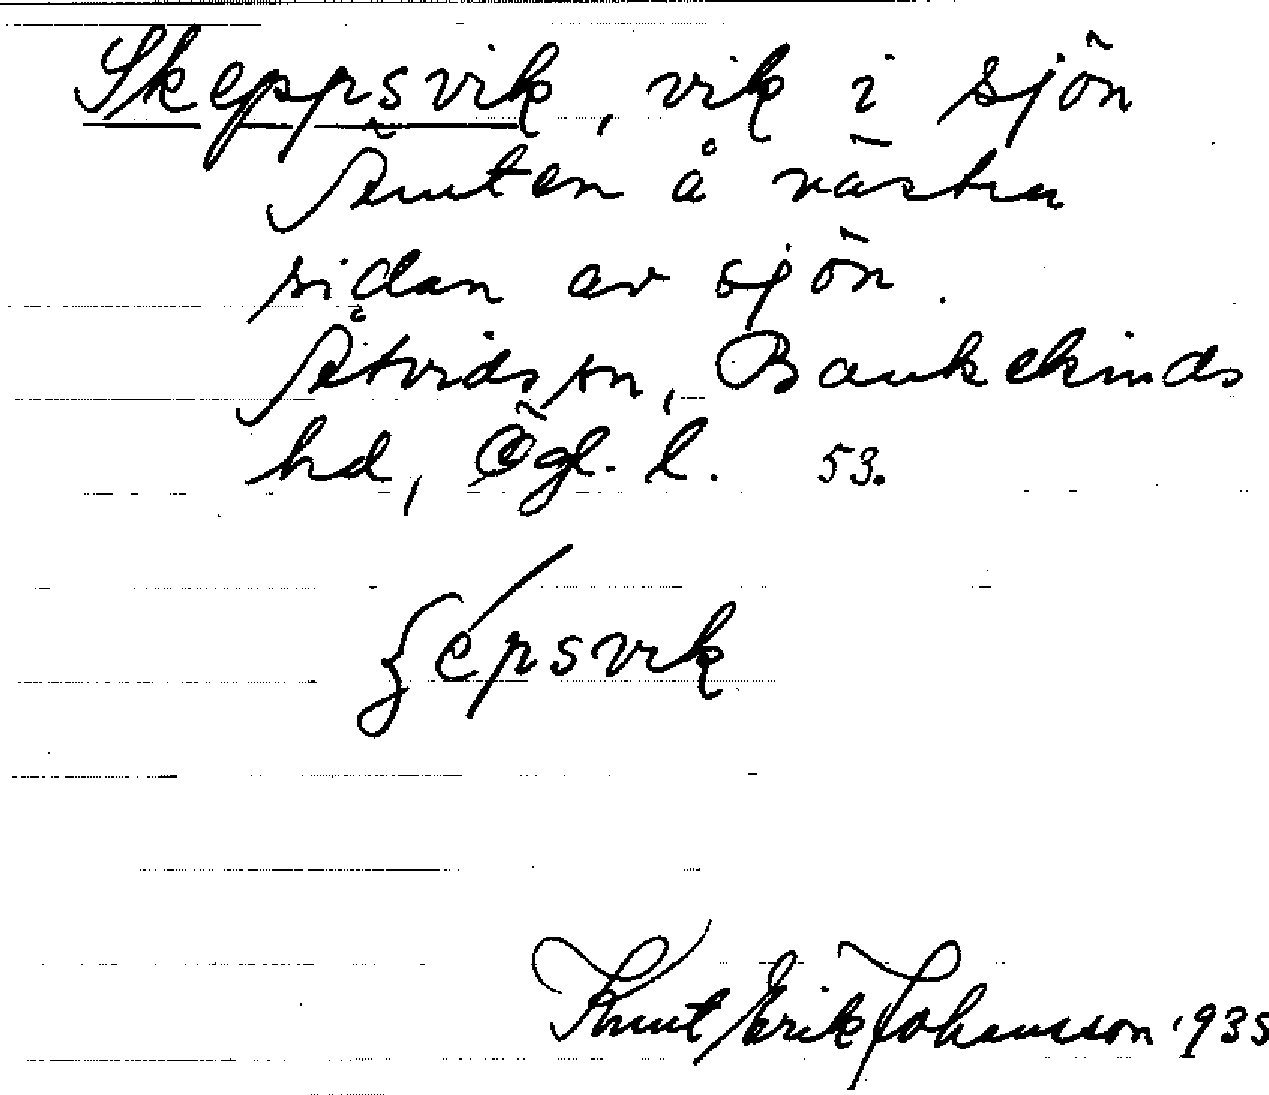 Skeppsvik, vik i sjön
Ämten å västra
sidan av sjön.
Åtvids sn, Bankekinds
hd, Ögl. l. 53.
ʃépsvik
Knut Erik Johansson 1935